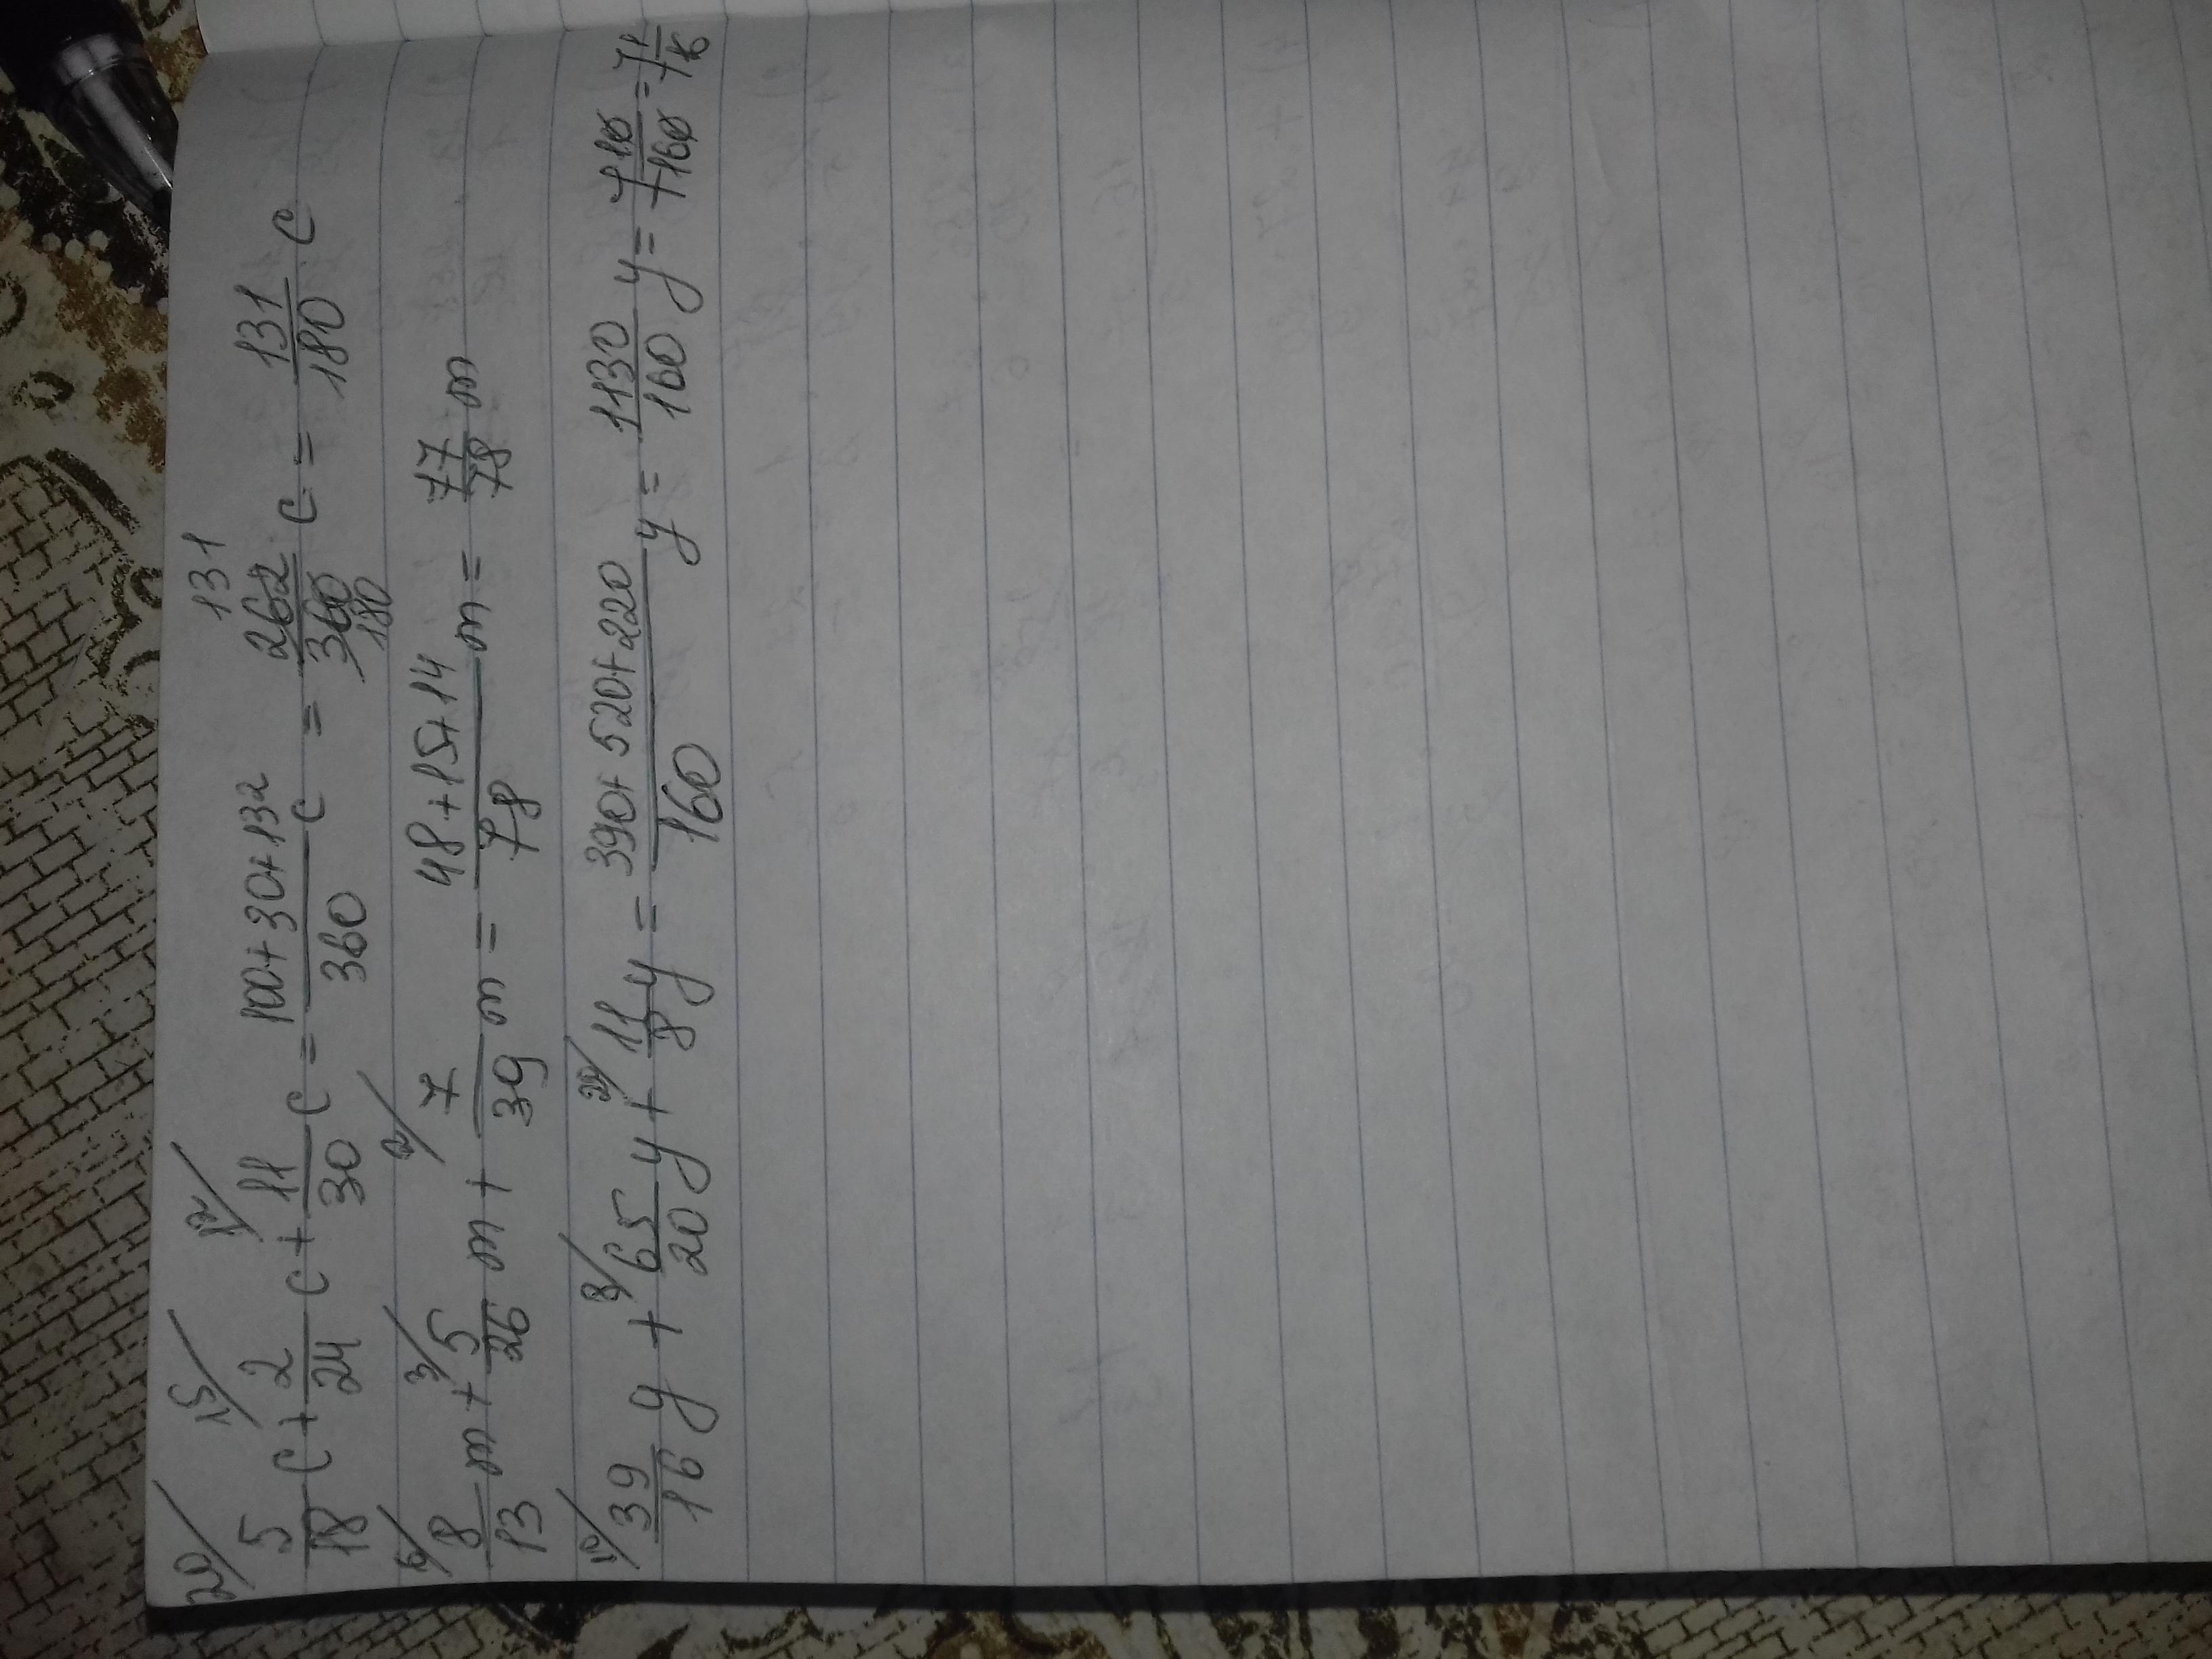 20/ 5/18 c + 15/ 2/24 c + 12/ 11/30 c = (100+30+132)/360 c = 262/360 c = 131/180 c
131
180
6/ 8/13 m + 3/ 5/26 m + 2/ 7/39 m = (48+15+14)/78 m = 77/78 m
10/ 39/16 y + 8/ 65/20 y + 20/ 11/8 y = (390+520+220)/160 y = 1130/160 y = 7 10/160 = 7 1/16